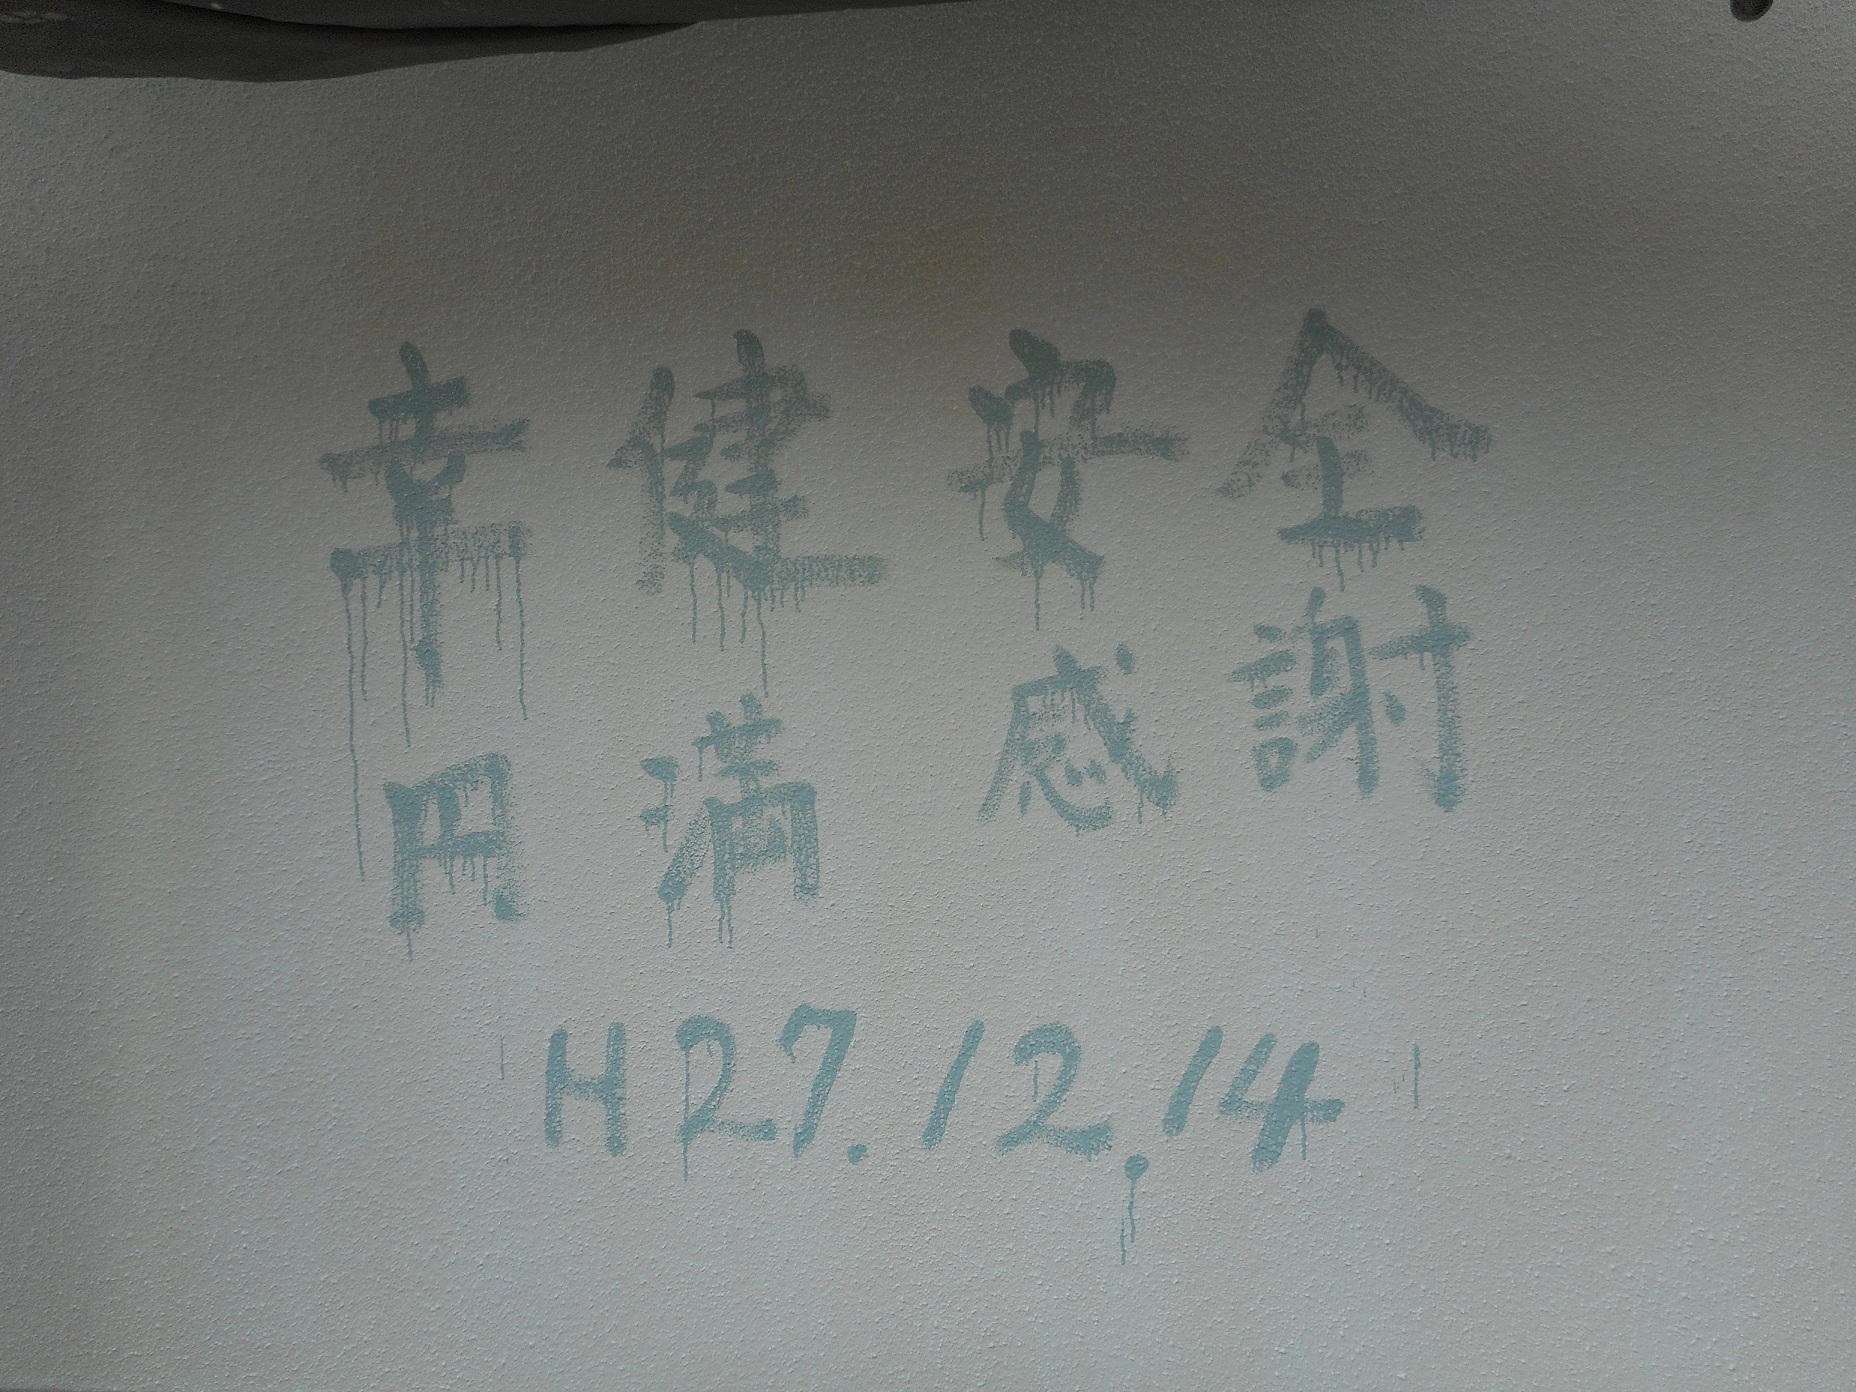 幸健安全
円満感謝
H27.12.14